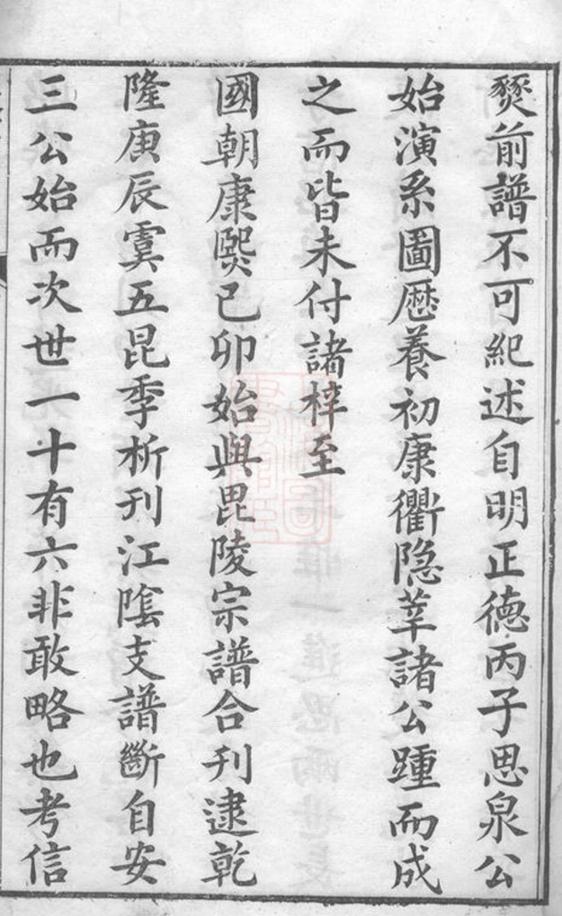 燹前譜不可紀述自明正德丙子思泉公
始演系圖歷養初康衢隐莘諸公踵而成
之而皆未付諸梓至
國朝康熙己卯始與毘陵宗譜合刊逮乾
隆庚辰虞五昆季析刊江陰支譜斷自安
三公始而次世一十有六非敢略也考信